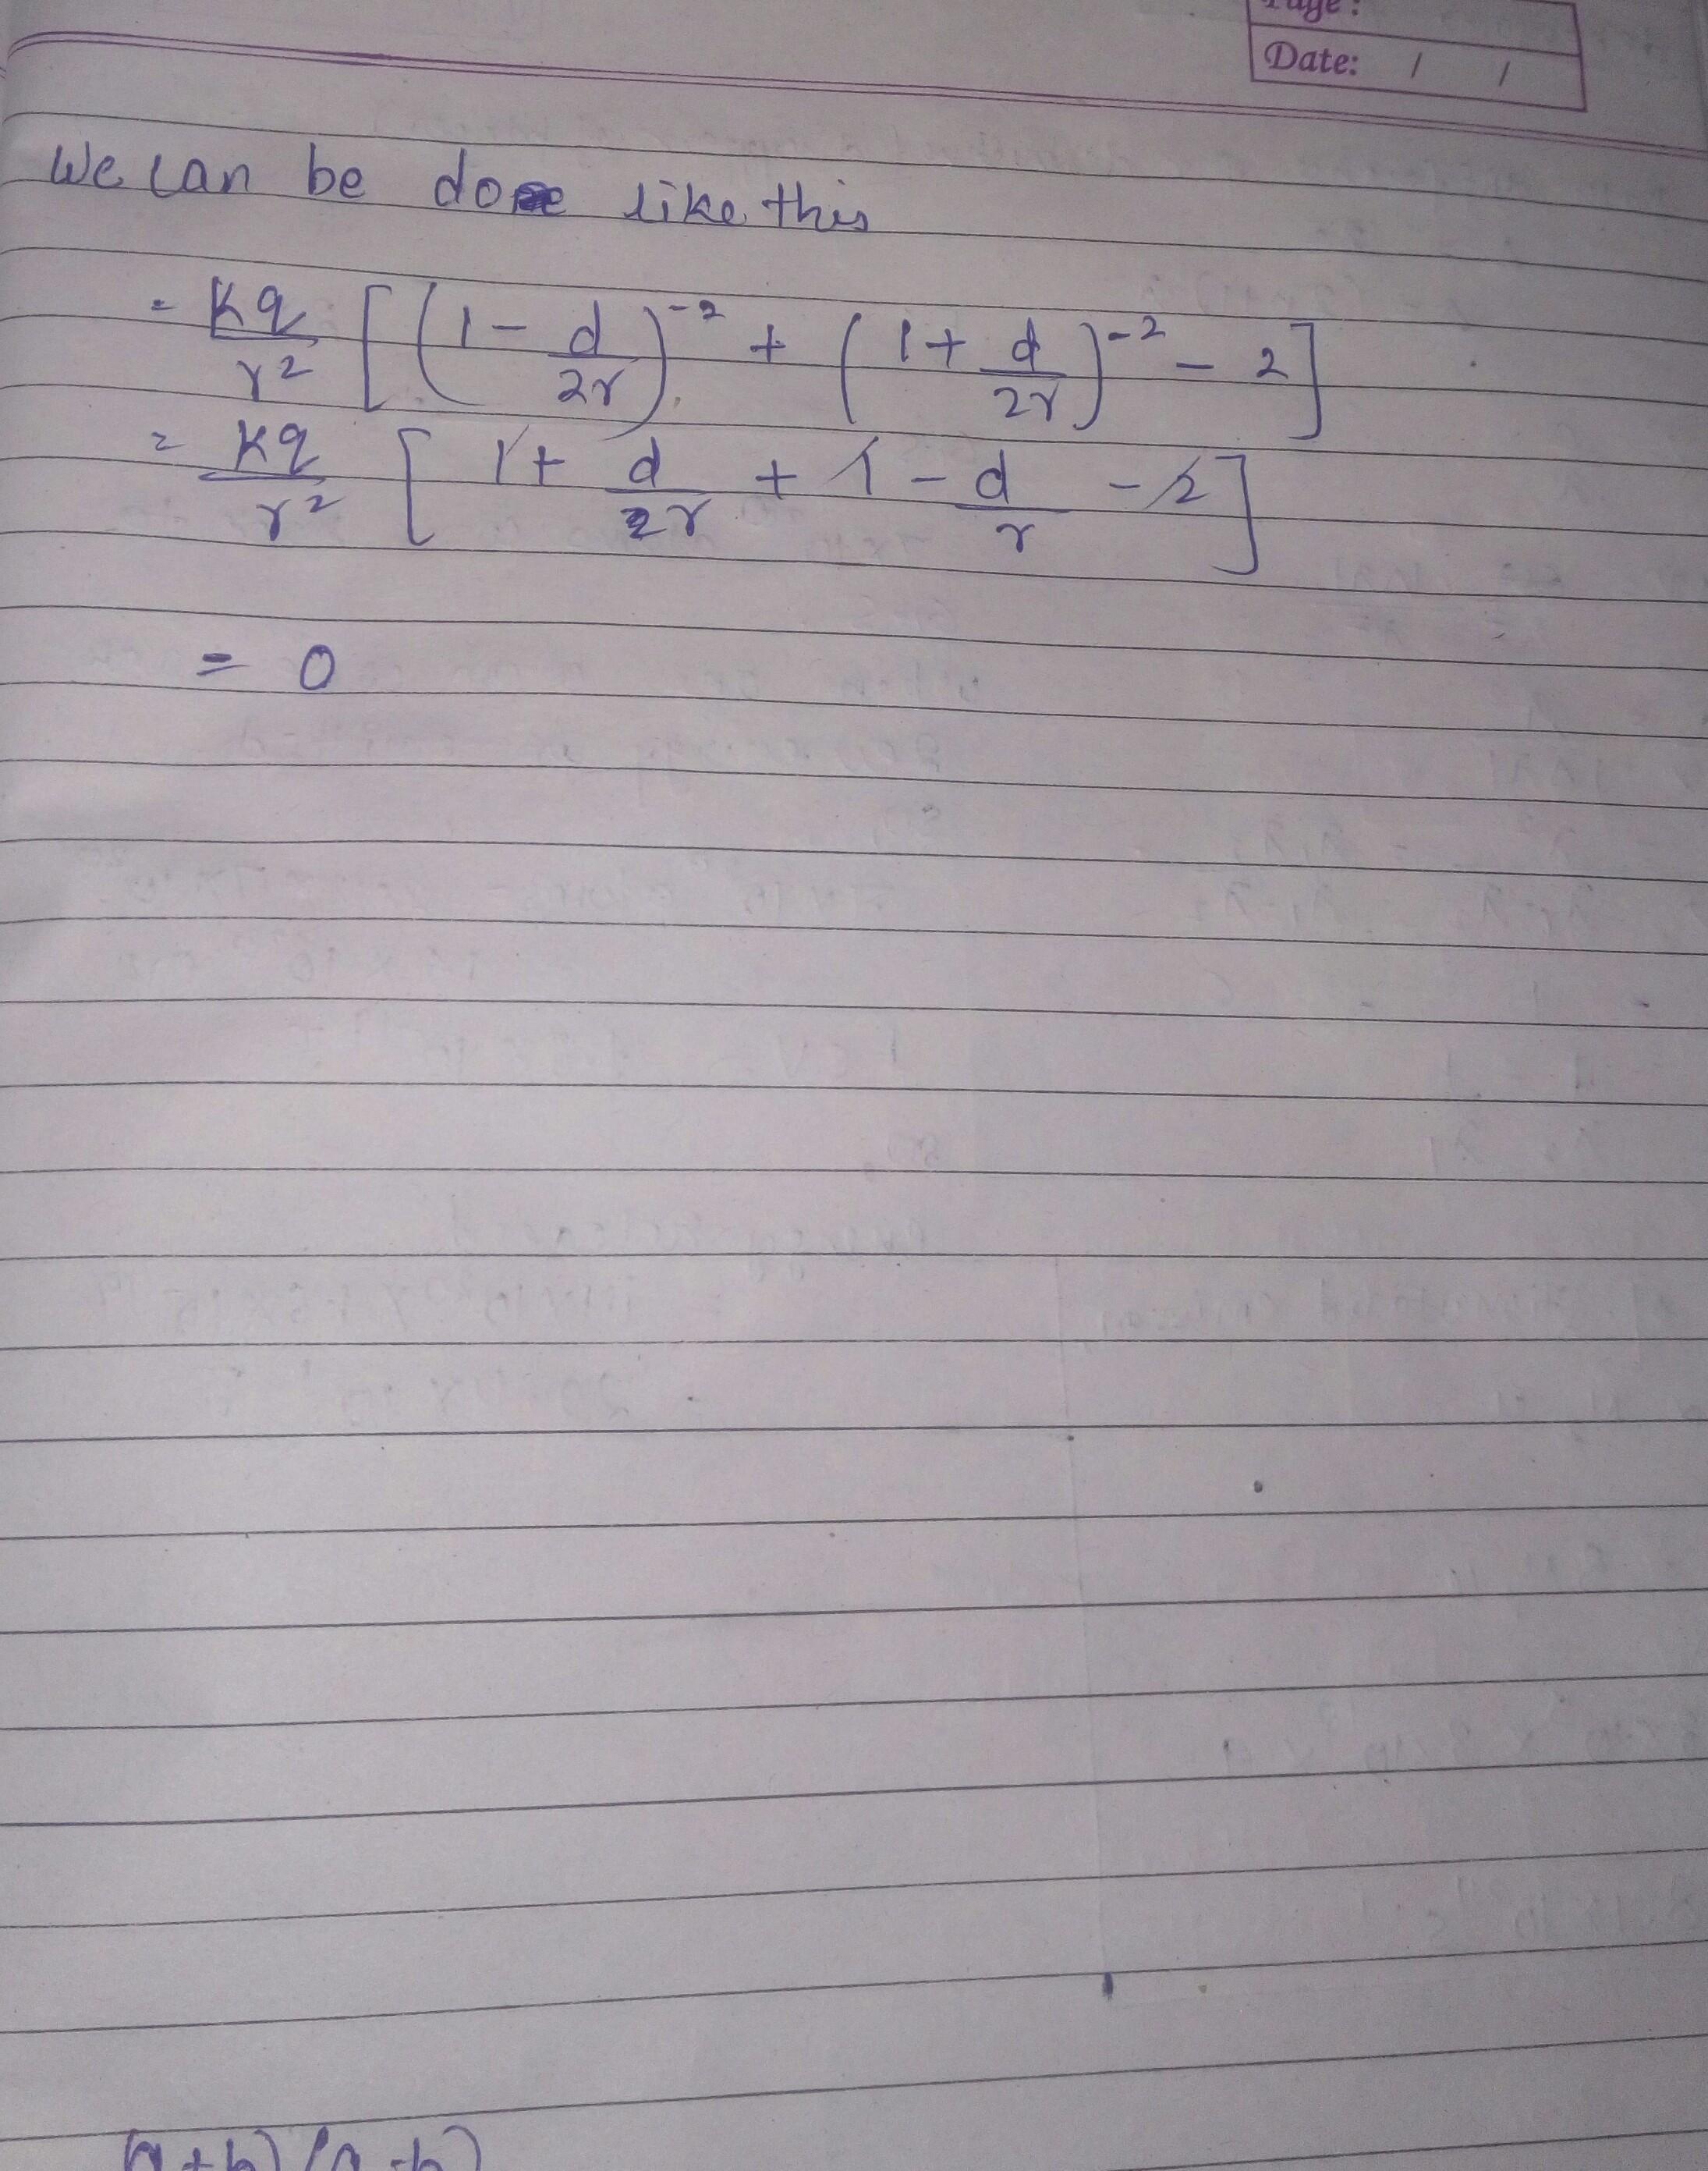 Page:
Date: / /
We can be done like this
= Kq/r² [(1 - d/2r)⁻² + (1 + d/2r)⁻² - 2]
= Kq/r² [1 + d/2r + 1 - d/r - 2]
= 0
(a+b) (a-b)